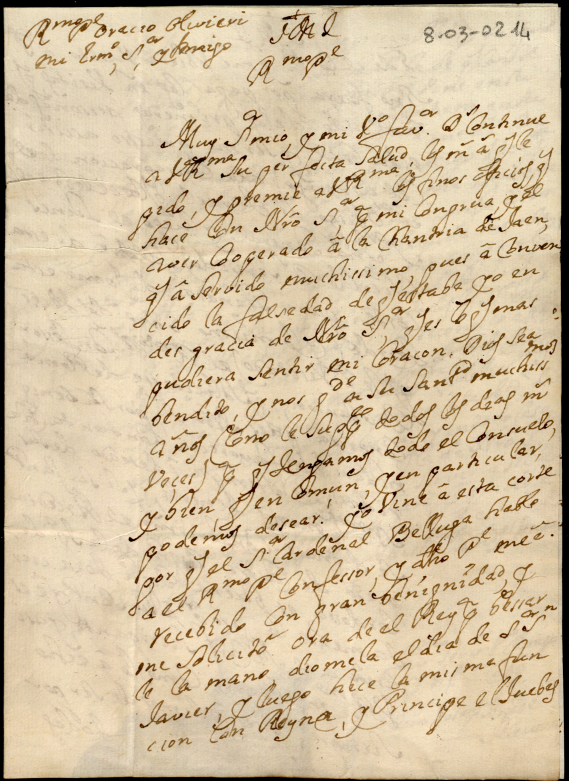 Rmo Pe Oracio Olivieri
mi Ermo, Sr, y Amigo
JHS
8-03-02 14
Rmo Pe
Muy Sr mio, y mi Vo favr. Ds Continue
a VRma su perfecta salud,
gido, y premie a VRma, los finos oficios q
hace con Nro Sr, mi Congrua y el
aver cooperado â la Chantria de Jaen,
q â servido muchissimo, pues â Conven
cido la falsedad de q estaba yo en
desgracia de Nro Sr, q es lo q mas
pudiera sentir mi Coracon. Dios sea
bendido, y nos gde a su Santd muchissmos
años, Como le suppco todos los dias mil
veces, pa q tengamos todo el Consuelo,
y bien q en Comun, y en particular,
podemos desear. Yo vine â esta corte
por q el Sr Cardenal Belluga hable
a el Rmo Pe Confessor, y dho Pe me â
recebido con gran benignidad, y
me solicitô ora de el Rey pa bessar
le la mano, diomela el dia de Sn
Javier, y luego hice la misma fun
cion con Reyna, y Principe el Juebes